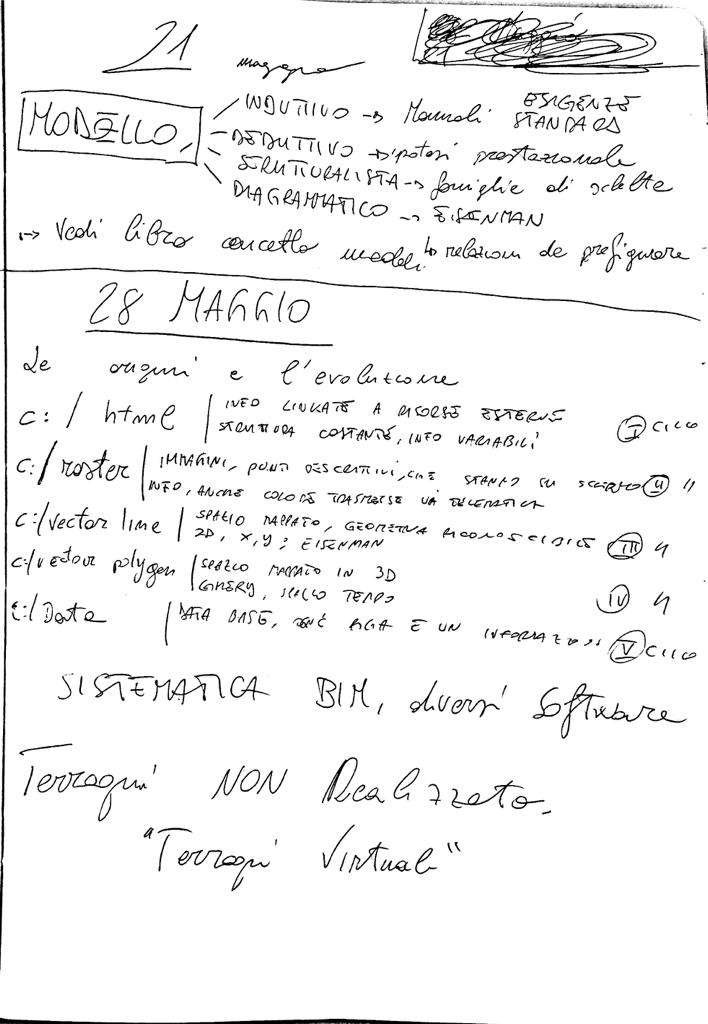 21 maggio
MODELLO
INDUTTIVO → Manuali ESIGENZE STANDARD
DEDUTTIVO → ipotesi prestazionale
STRUTTURALISTA → famiglie di scelte
DIAGRAMMATICO → EISENMAN
→ Vedi libro concetto modelli ↳ relazioni da prefigurare
28 MAGGIO
Le origini e l'evoluzione
c:/ html | INFO LINKATE A RISORSE ESTERNE
STRUTTURA COSTANTE, INFO VARIABILI I CICLO
c:/raster | IMMAGINI, PUNTI DESCRITTIVI, CHE STANNO SU SCHERMO II "
INFO, ANCHE COLORE TRASMESSE VIA TELEMATICA
c:/vector line | SPAZIO MAPPATO, GEOMETRIA RICONOSCIBILE III "
2D, x,y; EISENMAN
c:/vector polygon | SPAZIO MAPPATO IN 3D
GHERY, SPAZIO TEMPO IV "
c:/Data | DATA BASE, OGNI RIGA È UN INFORMAZIONE V CICLO
SISTEMATICA BIM, diversi Software
Terragni NON Realizzato.
"Terragni Virtuale"